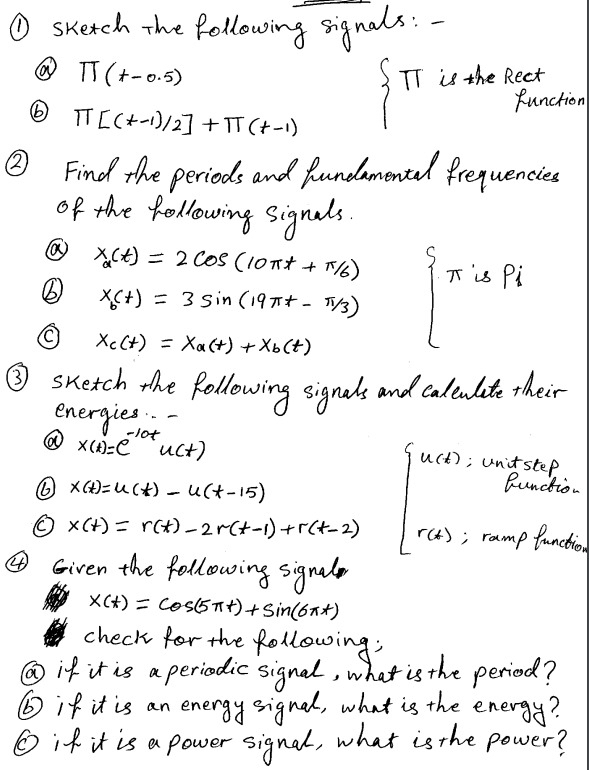 ① Sketch the following signals: -
ⓐ Π(t-0.5) { Π is the Rect function
ⓑ Π[(t-1)/2] + Π(t-1)
② Find the periods and fundamental frequencies
of the following signals.
ⓐ Xa(t) = 2 cos (10πt + π/6) { π is Pi
ⓑ Xb(t) = 3 sin (19πt - π/3)
ⓒ Xc(t) = Xa(t) + Xb(t)
③ Sketch the following signals and calculate their
energies. -
ⓐ x(t)=e^-10t u(t) { u(t) ; unit step function
ⓑ x(t)=u(t) - u(t-15)
ⓒ x(t) = r(t) - 2r(t-1) + r(t-2) r(t) ; ramp function
④ Given the following signal
x(t) = cos(5πt)+sin(6πt)
check for the following;
ⓐ if it is a periodic signal, what is the period?
ⓑ if it is an energy signal, what is the energy?
ⓒ if it is a power signal, what is the power?